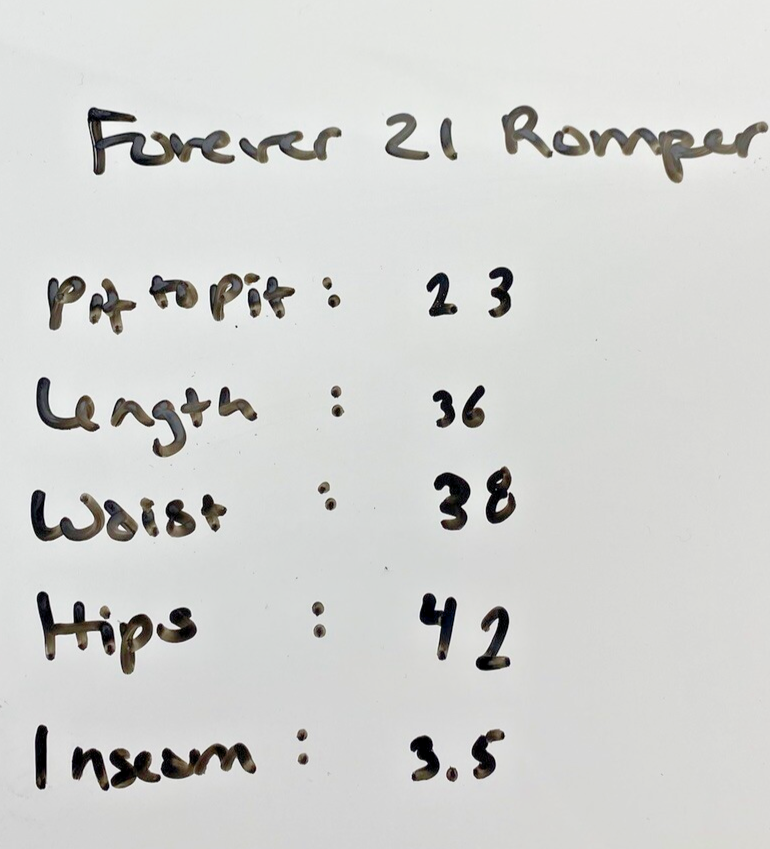 Forever 21 Romper
Pit to Pit : 23
Length : 36
Waist : 38
Hips : 42
Inseam : 3.5